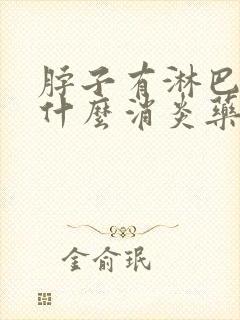 脖子有淋巴
什麼消炎藥
金俞珉